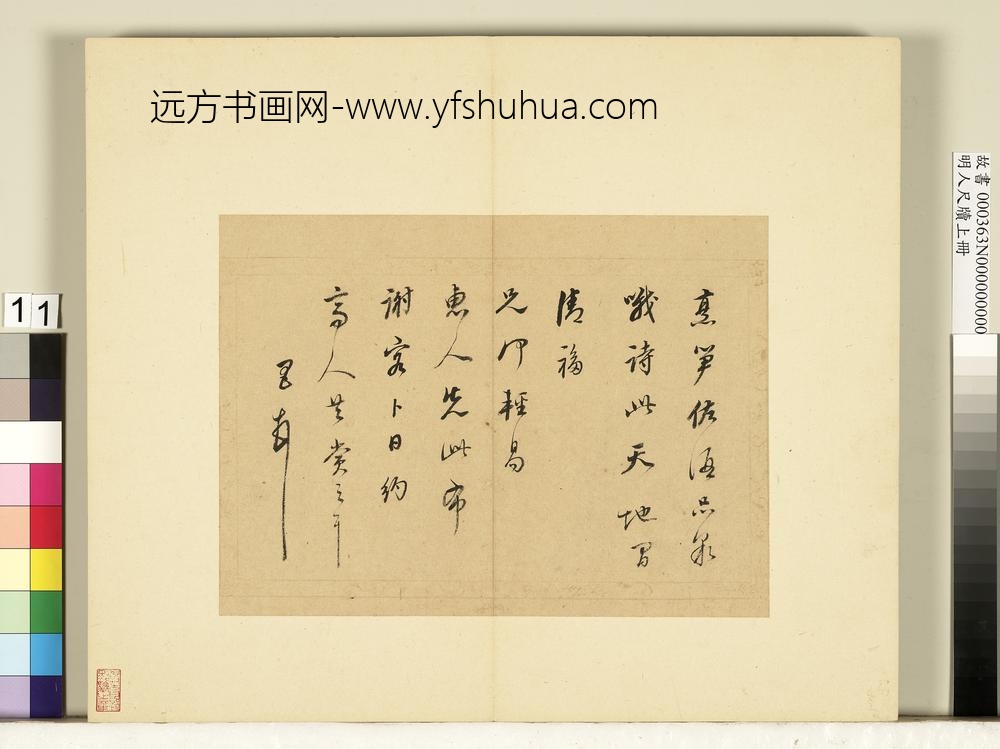 远方书画网-www.yfshuhua.com
烹笋佐酒品泉
哦詩此天地間
清福
兄何輕易
惠人先此布
謝容卜日約
高人共賞之耳
故書 000363N000000000
明人尺牘上冊
11